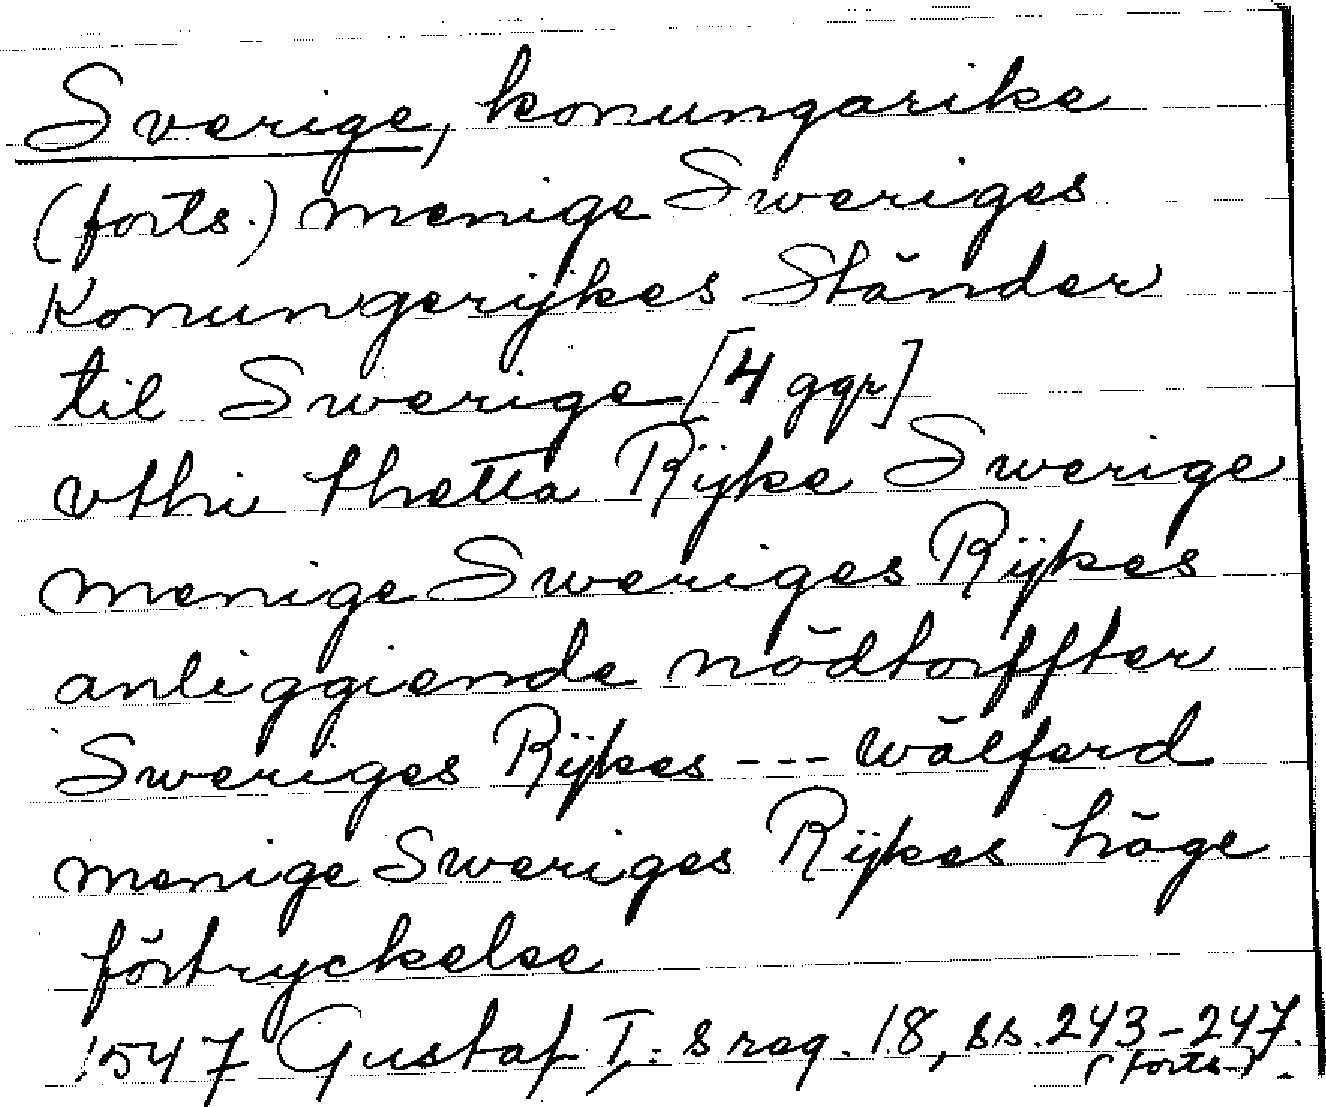 Sverige, konungarike
(forts.) menige Sweriges
Konungerijkes Ständer
til Swerige [4 ggr]
vthi thetta Rijke Swerige
menige Sweriges Rijkes
anliggiende nödtorffter
Sweriges Rijkes --- wälferd
menige Sweriges Rijkes höge
förtryckelse
1547 Gustaf I:s reg. 18, ss. 243-247.
(forts.).